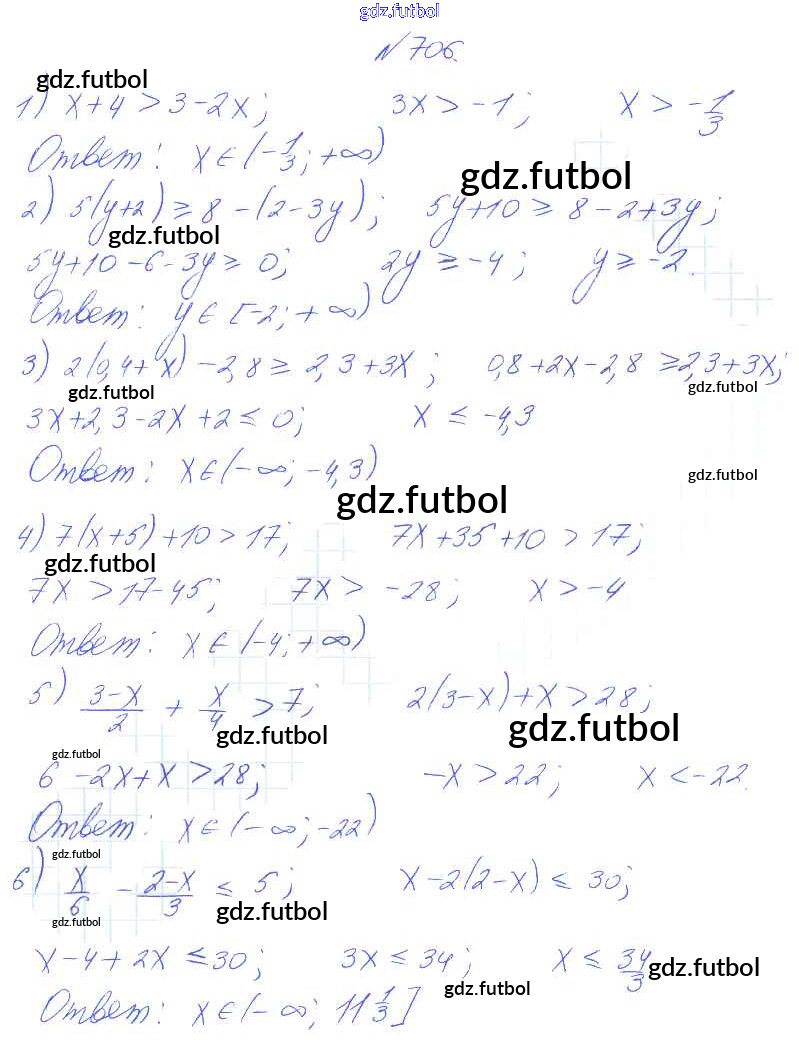 gdz.futbol
N 706.
gdz.futbol
1) x+4 > 3-2x; 3x > -1; x > -1/3
Ответ: x∈(-1/3; +∞)
gdz.futbol
2) 5(y+2) ≥ 8-(2-3y); 5y+10 ≥ 8-2+3y;
gdz.futbol
5y+10-6-3y ≥ 0; 2y ≥ -4; y ≥ -2.
Ответ: y∈[-2; +∞)
3) 2(0,4+x)-2,8 ≥ 2,3+3x; 0,8+2x-2,8 ≥ 2,3+3x;
gdz.futbol gdz.futbol
3x+2,3-2x+2 ≤ 0; x ≤ -4,3
Ответ: x∈(-∞; -4,3)
gdz.futbol
gdz.futbol
4) 7(x+5)+10 > 17; 7x+35+10 > 17;
gdz.futbol
7x > 17-45; 7x > -28; x > -4
Ответ: x∈(-4; +∞)
5) (3-x)/2 + x/4 > 7; 2(3-x)+x > 28;
gdz.futbol gdz.futbol
gdz.futbol
6-2x+x > 28; -x > 22; x < -22.
Ответ: x∈(-∞; -22)
gdz.futbol
6) x/6 - (2-x)/3 ≤ 5; x-2(2-x) ≤ 30;
gdz.futbol gdz.futbol
x-4+2x ≤ 30; 3x ≤ 34; x ≤ 34/3
gdz.futbol
gdz.futbol
Ответ: x∈(-∞; 11 1/3]